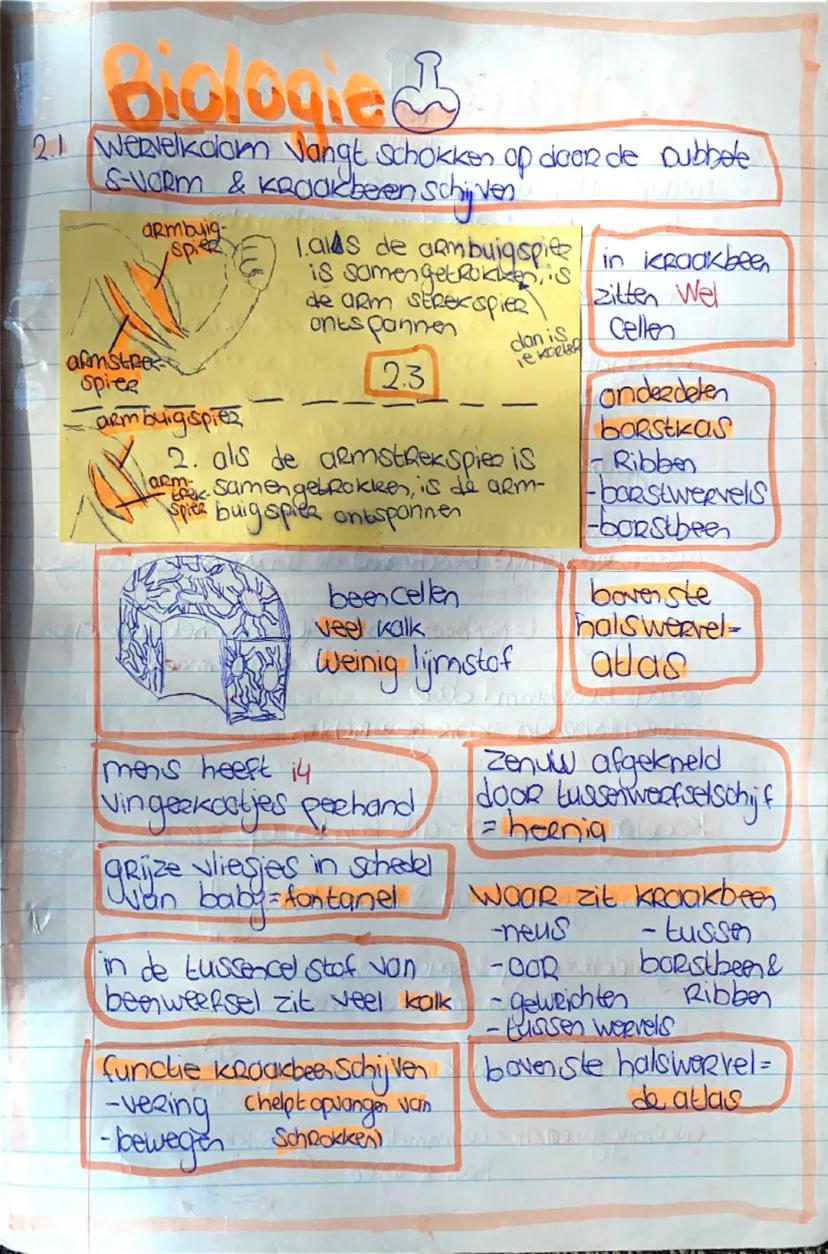 Biologie
2.1 Wervelkolom vangt schokken op door de dubbele
S-vorm & kraakbeenschijven
armbuig-
spier
armstrek-
spier
1. als de armbuigspier
is samengetrokken, is
de arm strekspier
ontspannen
dan is
ie korter
2.3
armbuigspier
arm-
strek-
spier
2. als de armstrekspier is
samengetrokken, is de arm-
buigspier ontspannen
in kraakbeen
zitten wel
cellen
onderdelen
borstkas
- Ribben
- borstwervels
- borstbeen
beencellen
veel kalk
weinig lijmstof
bovenste
halswervel=
atlas
mens heeft 14
vingerkootjes per hand
zenuw afgekneld
door tussenwerfselschijf
= hernia
grijze vliesjes in schedel
van baby = fontanel
waar zit kraakbeen
- neus
- oor
- gewrichten
- tussen wervels
- tussen
borstbeen &
Ribben
in de tussencelstof van
beenweefsel zit veel kalk
functie kraakbeenschijven
- vering (helpt opvangen van
- bewegen schrokken)
bovenste halswervel =
de atlas